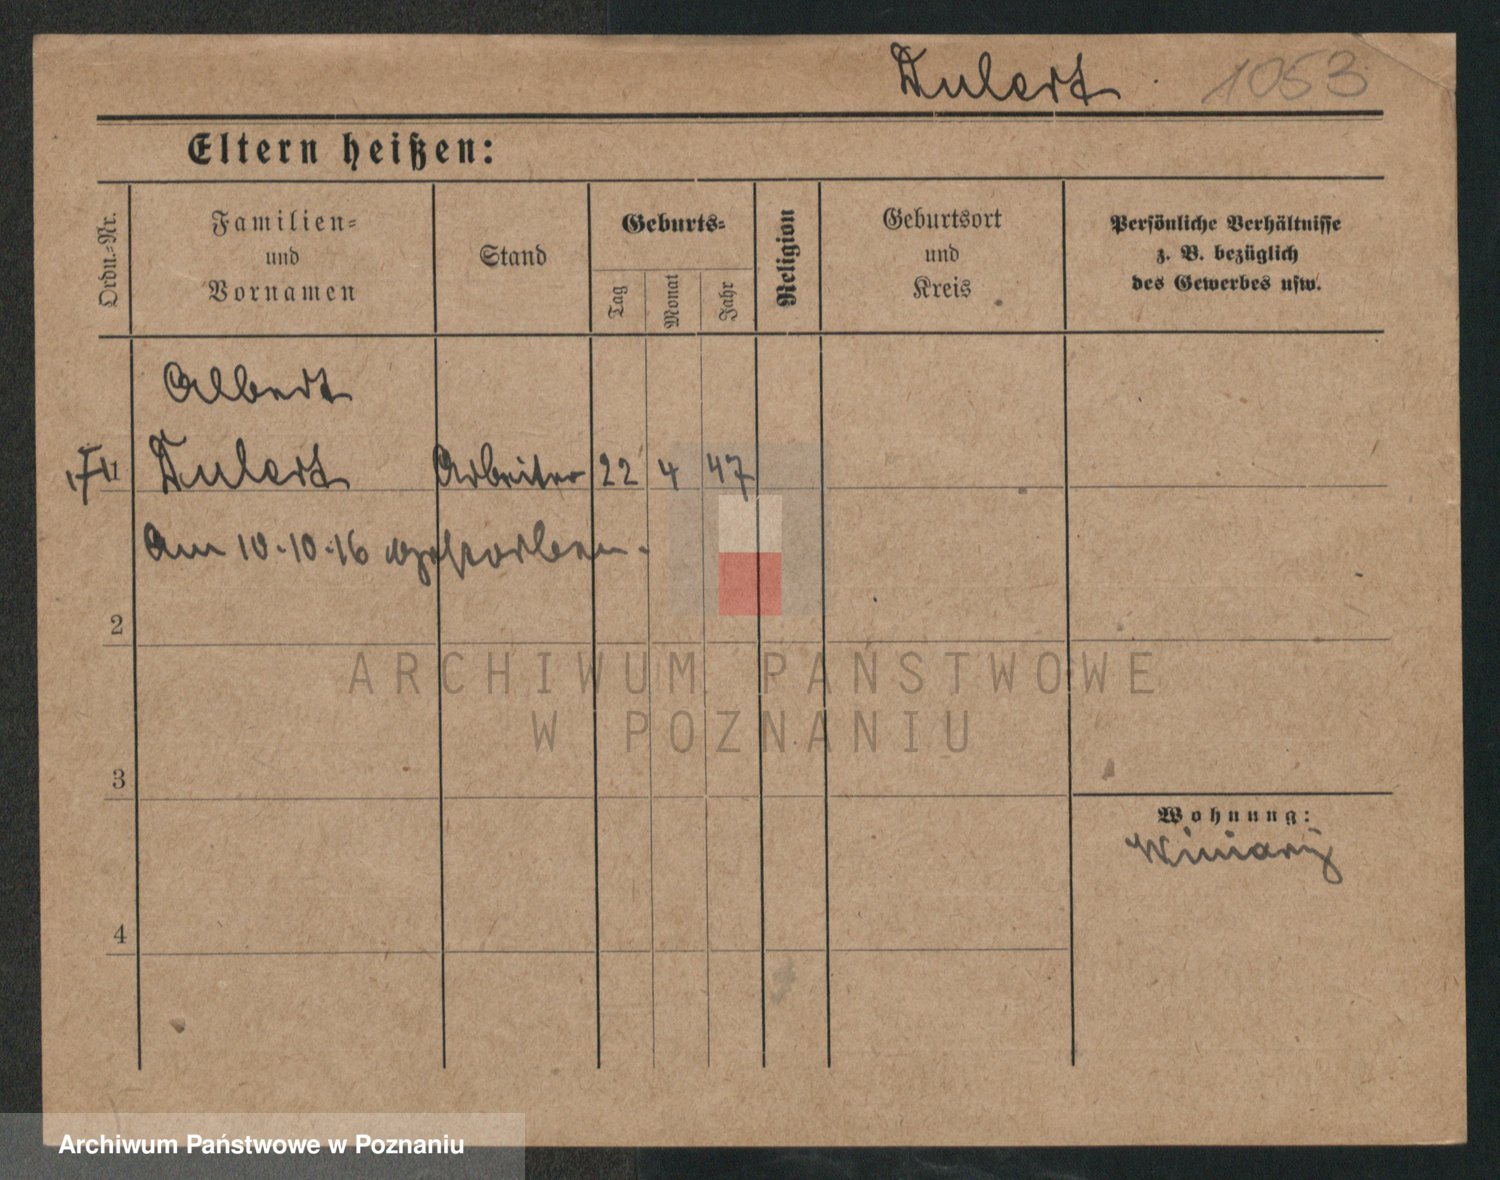 Dulert 1053
Eltern heißen:
Ordn.-Nr.
Familien-
und
Vornamen
Stand
Geburts-
Tag
Monat
Jahr
Religion
Geburtsort
und
Kreis
Persönliche Verhältnisse
z. B. bezüglich
des Gewerbes usw.
Albert
Dulert Arbeiter 22 4 47
Am 10.10.16 gestorben.
2
ARCHIWUM PAŃSTWOWE
W POZNANIU
3
Wohnung:
Winiary
4
Archiwum Państwowe w Poznaniu